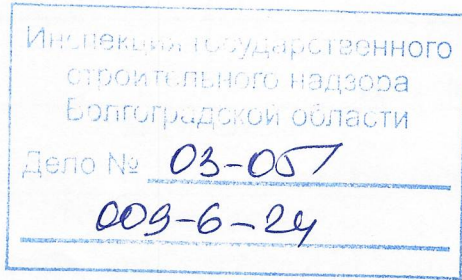 Инспекция государственного
строительного надзора
Волгоградской области
Дело № 03-051
009-6-24